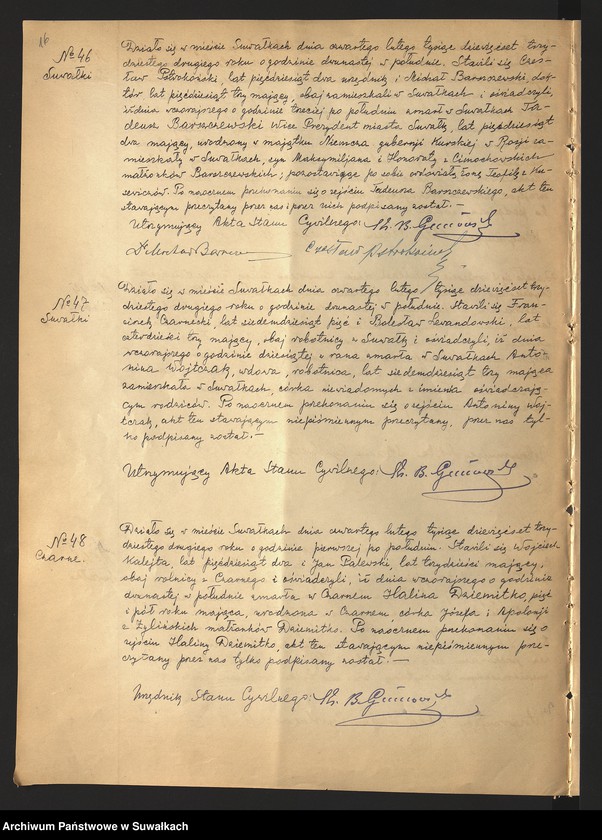 16
№ 46
Suwałki
Działo się w mieście Suwałkach dnia czwartego lutego tysiąc dziewięćset trzy-
dziestego drugiego roku o godzinie dwunastej w południe. Stawili się Cze-
sław lat pięćdziesiąt dwa urzędnik i Michał Baroszewski, dok-
tór, lat pięćdziesiąt trzy mający, obaj zamieszkali w Suwałkach i oświadczyli,
iż dnia wczorajszego o godzinie trzeciej po południu zmarł w Suwałkach Ta-
deusz Baroszewski Wice Prezydent miasta Suwałk, lat pięćdziesiąt
dwa mający, urodzony w majątku gubernji Kurskiej w Rosji za-
mieszkały w Suwałkach, syn Maksymiljana i Honoraty z Cimochowskich
małżonków Baroszewskich; pozostawiając po sobie owdowiałą żonę Teofilę z
Po naocznem przekonaniu się o zejściu Tadeusza Baroszewskiego, akt ten
stawającym przeczytany przez nas i przez nich podpisany został. —
Utrzymujący Akta Stanu Cywilnego:
№ 47
Suwałki
Działo się w mieście Suwałkach dnia czwartego lutego tysiąc dziewięćset trzy-
dziestego drugiego roku o godzinie dwunastej w południe. Stawili się Fran-
ciszek Czarnecki, lat siedemdziesiąt pięć i Bolesław Lewandowski, lat
czterdzieści trzy mający, obaj robotnicy z Suwałk i oświadczyli, iż dnia
wczorajszego o godzinie dziesiątej z rana zmarła w Suwałkach Anto-
nina Wójtczak, wdowa, robotnica, lat siedemdziesiąt trzy mająca
zamieszkała w Suwałkach, córka niewiadomych z imienia oświadczają-
cym rodziców. Po naocznem przekonaniu się o zejściu Antoniny Wój-
tczak, akt ten stawającym niepiśmiennym przeczytany, przez nas tyl-
ko podpisany został. —
Utrzymujący Akta Stanu Cywilnego:
№ 48
Czarne.
Działo się w mieście Suwałkach dnia czwartego lutego tysiąc dziewięćset trzy-
dziestego drugiego roku o godzinie pierwszej po południu. Stawili się Wojciech
Kalejta, lat pięćdziesiąt dwa i Jan Palewski, lat trzydzieści mający,
obaj rolnicy z Czarnego i oświadczyli, iż dnia wczorajszego o godzinie
dwunastej w południe zmarła w Czarnem Halina Dziemitko, pięć
i pół roku mająca, urodzona w Czarnem, córka Józefa i Apolonji
z Żylińskich małżonków Dziemitko. Po naocznem przekonaniu się o
zejściu Haliny Dziemitko, akt ten stawającym niepiśmiennym prze-
czytany przez nas tylko podpisany został. —
Urzędnik Stanu Cywilnego:
Archiwum Państwowe w Suwałkach